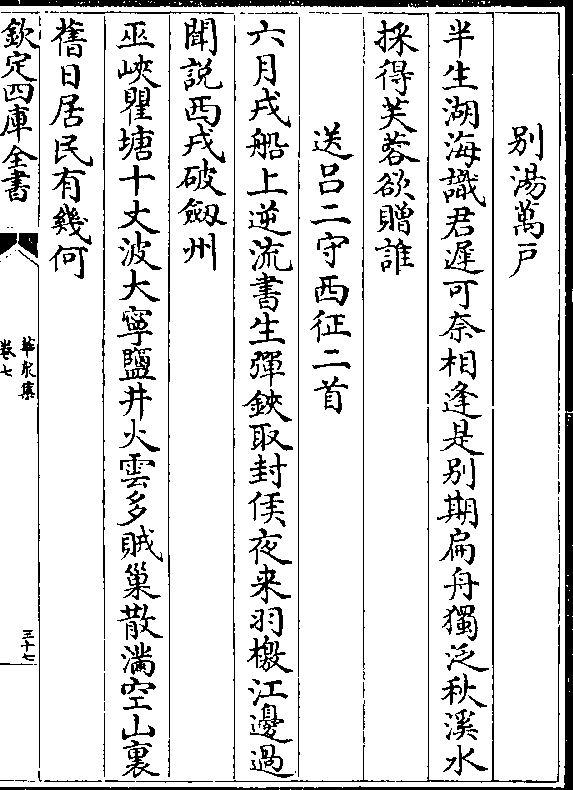 别湯萬戸
半生湖海識君遲可奈相逢是别期扁舟獨泛秋溪水
採得芙蓉欲贈誰
送吕二守西征二首
六月戎船上逆流書生彈鋏取封侯夜来羽檄江邊過
聞説西戎破劔州
巫峽瞿塘十丈波大寧鹽井火雲多賊巢散滿空山裏
舊日居民有幾何
欽定四庫全書
華泉集
卷七
三十七